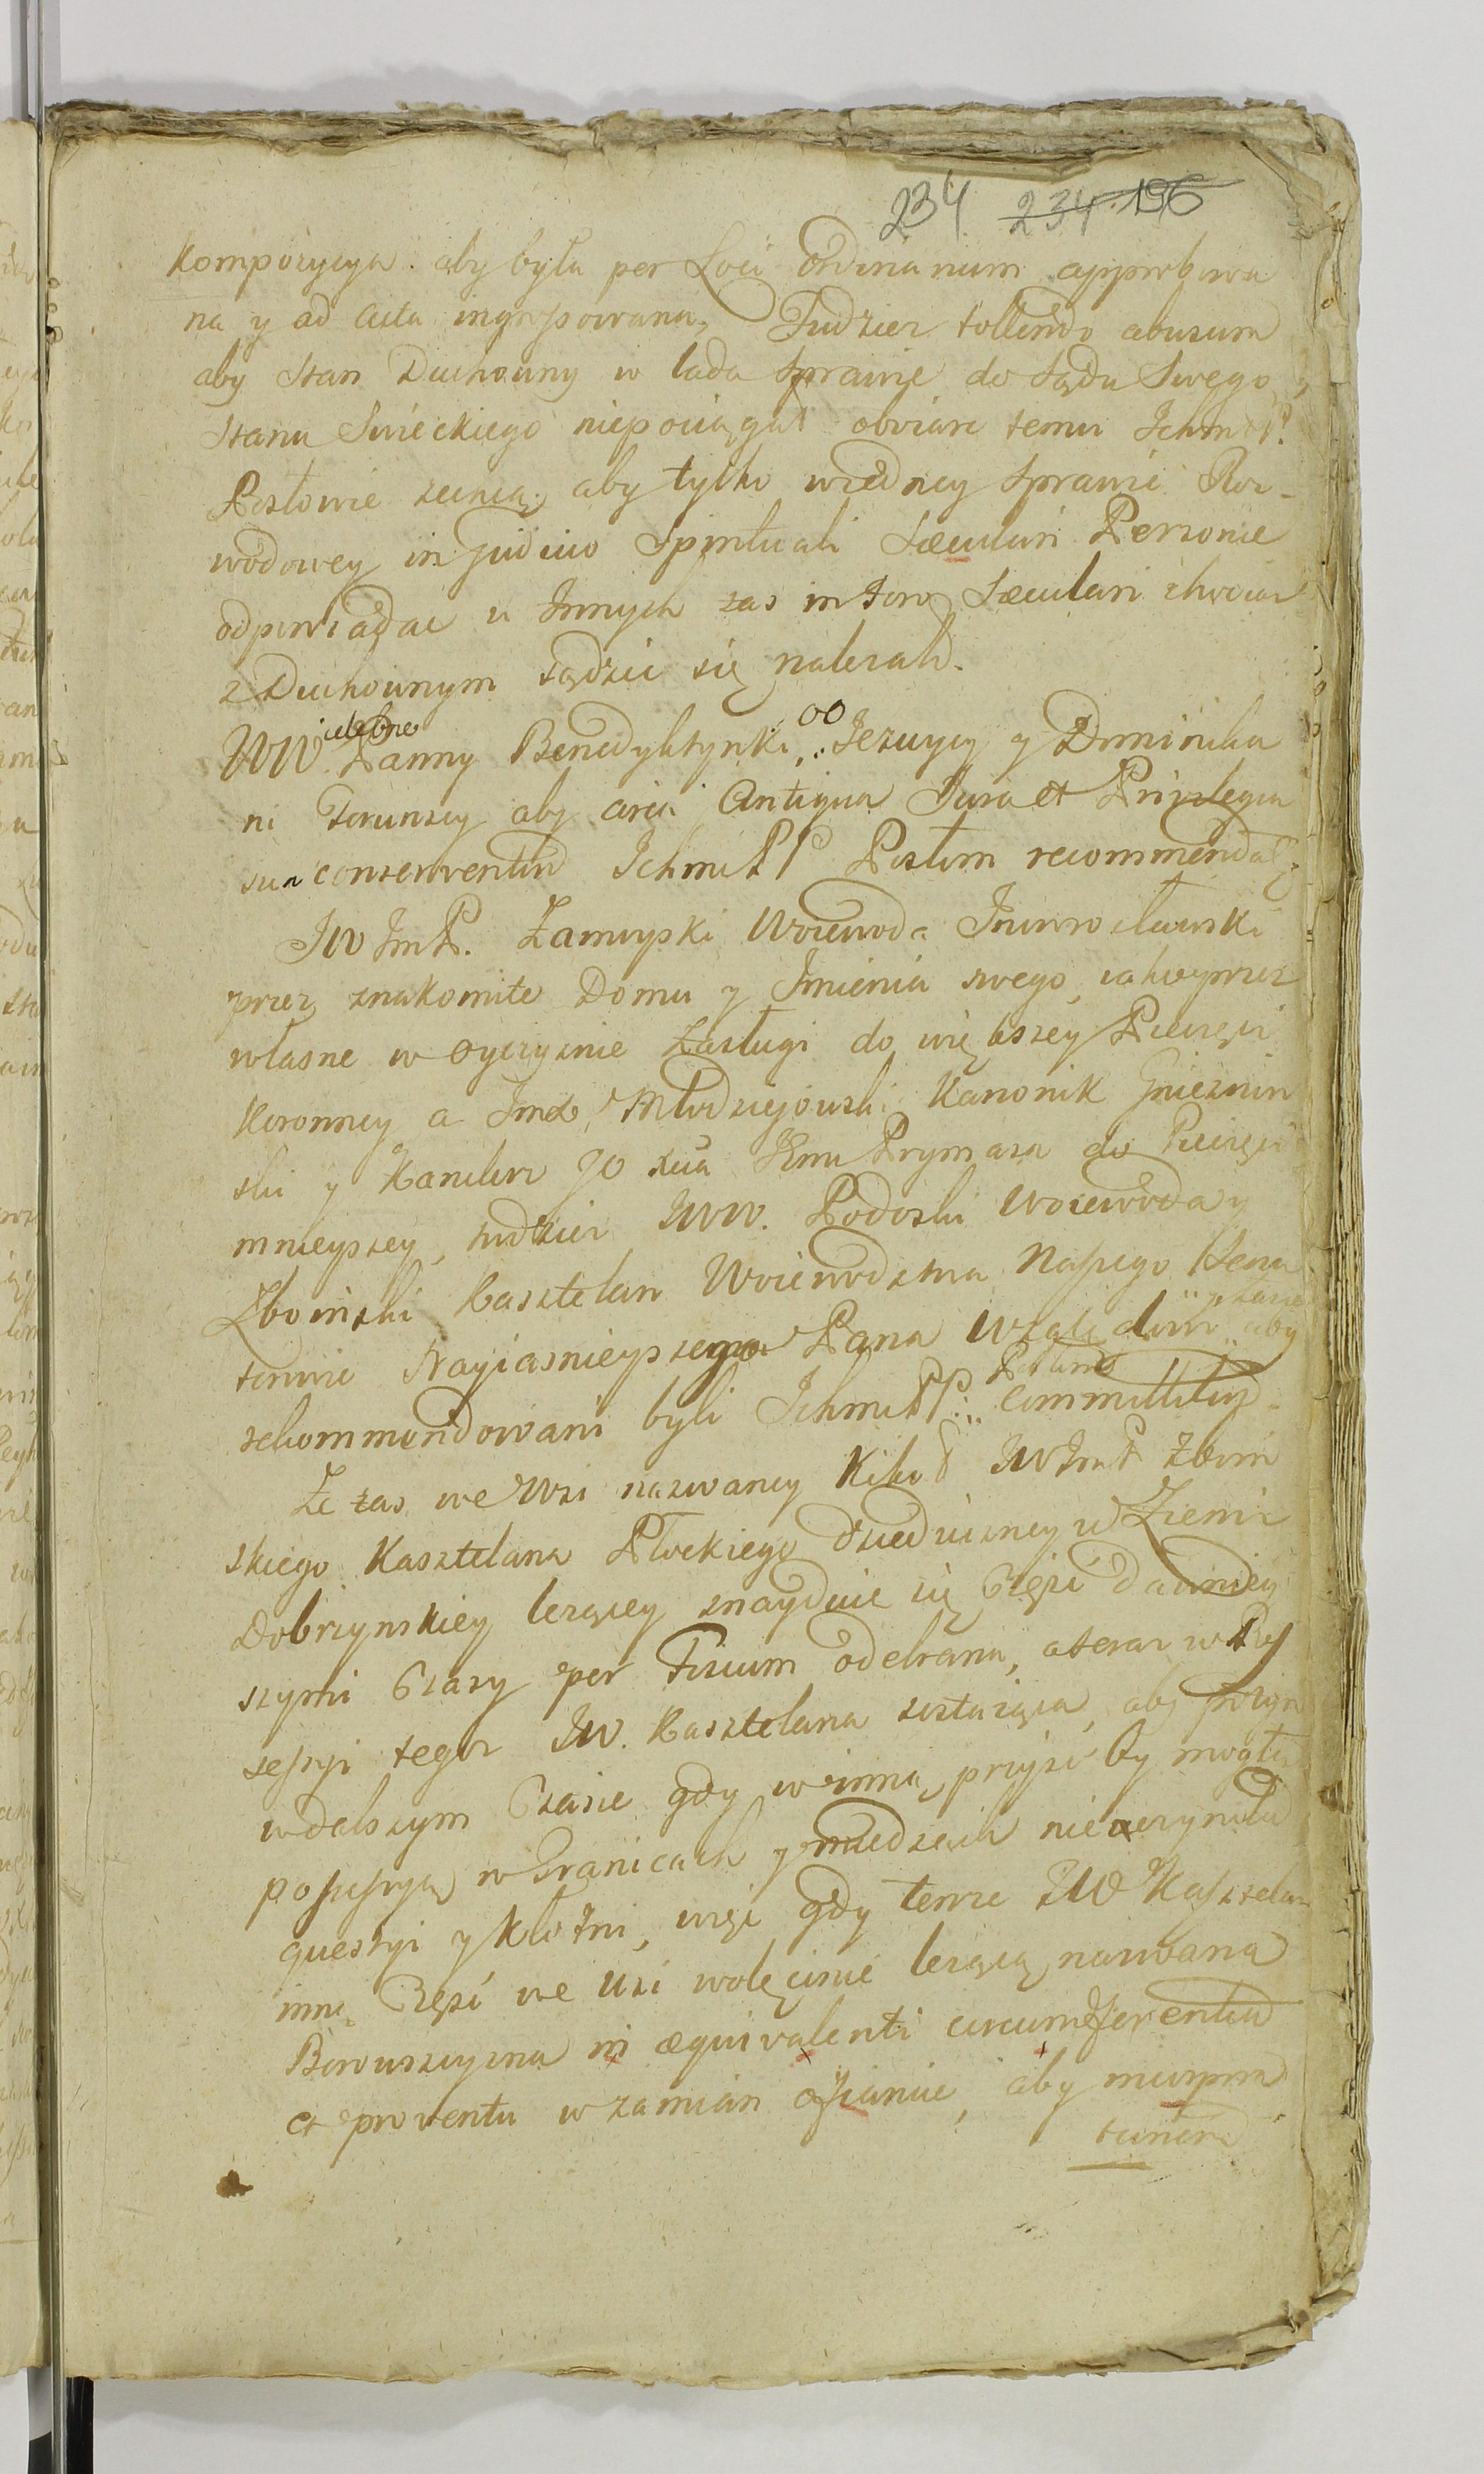 234 234. 196
Kompozycya. aby była per Loci Ordinarium approbowa
na y ad Acta ingrossowana, Tudziez tollendo abusum
aby Stan Duchowny w lada Sprawie do Sądu Swego
Stanu Swieckiego niepociągał obviare temu Ichmć PP.
Posłowie zechcą; aby tylko wiedney Sprawie Roz-
wodowey in Judicio Spirituali Sæculari Personie
odpowiadac w Innych zas in Foro Sæculari chociaz
z Duchownym sądzic się nalezało.
WWielebne Panny Benedyktynki, OO Jezuyci y Dominika
ni Torunscy aby circa Antiqua Jura et Privilegia
sua conserventur Ichmć PP Posłom recommendat;
JW ImP. Zamoyski Woiewoda Inowrocławski
przez znakomite Domu y Imienia swego, iako y przez
własne w oyczyznie zasługi do większey Pieczęci
Koronney a Imć X. Młodziejowski Kanonik Gnieznin
ski y Kanclerz JO Xcia Imci Prymasa do Pieczęci
mnieyszey, tudziez JWW. Podoski Woiewoda y
Zboinski Kasztelan Woiewodztwa Naszego Płoc
 Nayiasnieyszego Pana Względom aby
rekommendowani byli Ichmć PP. Posłom committitur.
Ze zas we Wsi nazwaney Kikoł JW ImP Zboin
skiego Kasztelana Płockiego dziedziczney w Ziemi
Dobrzynskiey lezącey znayduie się Częsc dawniey
szymi Czasy per Fiscum odebrana, a teraz w Pos
sessyi tegoz JW. Kasztelana zostaiąca, aby
w dalszym Czasie gdy w inną przyisc by mogła
possessyą w Granicach y miedzach nie uczyniła
questyi y kłotni, więc gdy tenze JW Kasztelan
inną Częsc we Wsi Wolęcinie lezącą nazwaną
Borouszczyzna in æquivalenti circumferentia
et proventu w zamian ofiaruie, aby